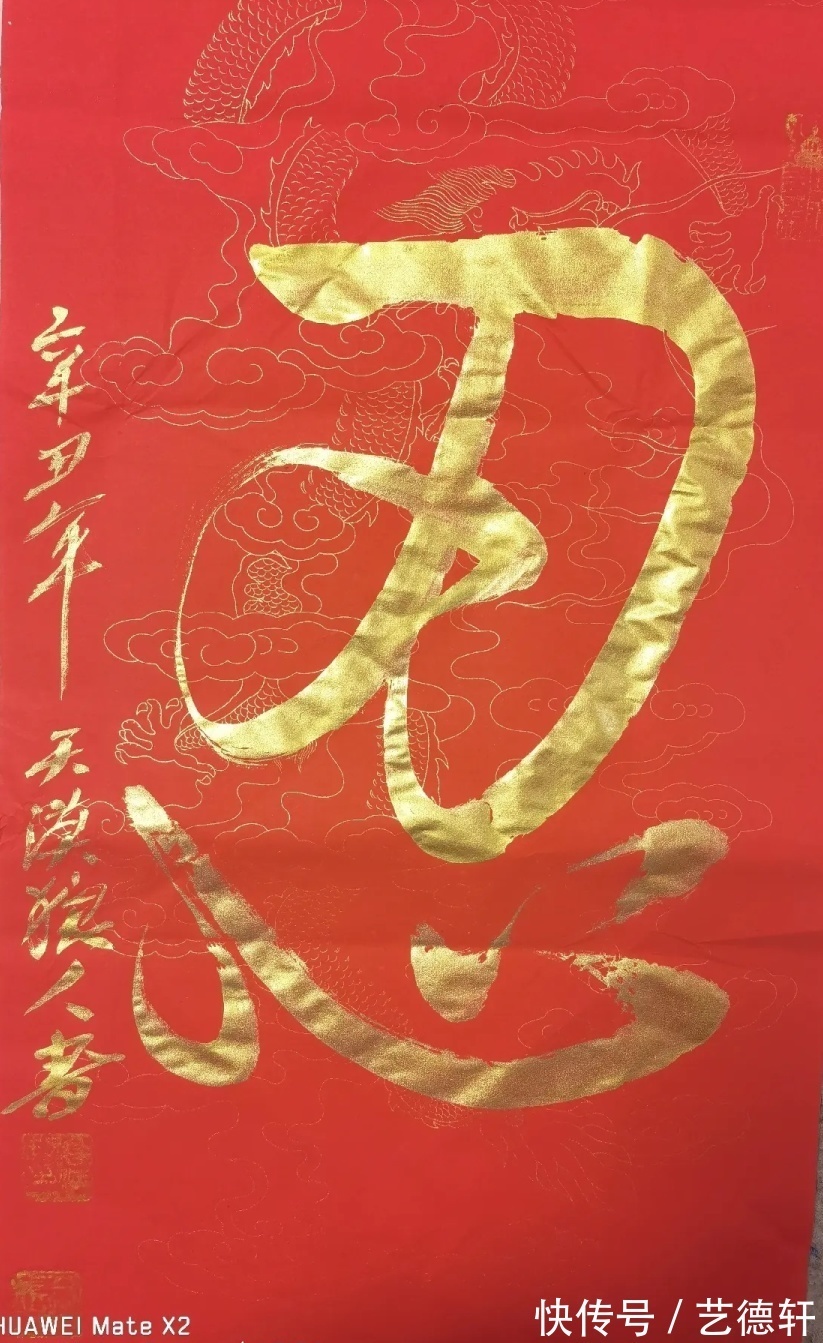 忍
辛丑年 天漠狼人書
HUAWEI Mate X2
快传号 / 艺德轩